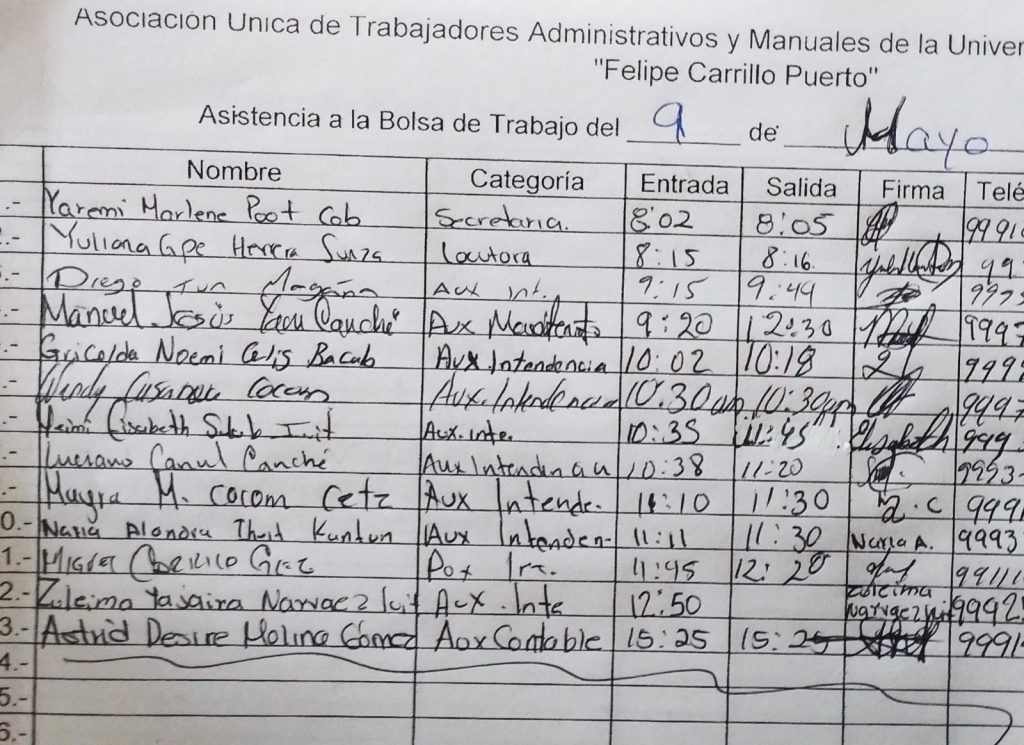 Asociación Unica de Trabajadores Administrativos y Manuales de la Univer
"Felipe Carrillo Puerto"
Asistencia a la Bolsa de Trabajo del 9 de Mayo
Nombre Categoría Entrada Salida Firma Telé
.- Yaremi Marlene Poot Cob Secretaria. 8:02 8:05 9991
.- Yuliana Gpe Herrera Sunza Locutora 8:15 8:16. 99
.- Diego Tun Magaña Aux Int. 9:15 9:49 9993
.- Manuel Jesús Yacu Canché Aux 9:20 12:30 9997
.- Gricelda Noemi Celis Bacab Aux Intendencia 10:02 10:18 999
.- Wendy Cocom Aux. Intendencia 10:30am 10:30am 9997
.- Elisabeth Aux. Inte. 10:35 11:45 Elisabeth 999
.- Luciano Canul Canché Aux Intenden 10:38 11:20 9993
.- Mayra M. cocom Cetz Aux Intende. 11:10 11:30 a.c 999
0.- Naria Alondra Kuntun Aux Intenden- 11:11 11:30 Naria A. 9993
1.- Miguel 11:45 12:20 9911
2.- Zuleima Yasaira Narvaez Iuit Aux. Inte 12:50 Zuleima Narvaez Iuit 9992
3.- Astrid Desire Molina Gómez Aox Contable 15:25 15:25 9991
4.-
5.-
6.-